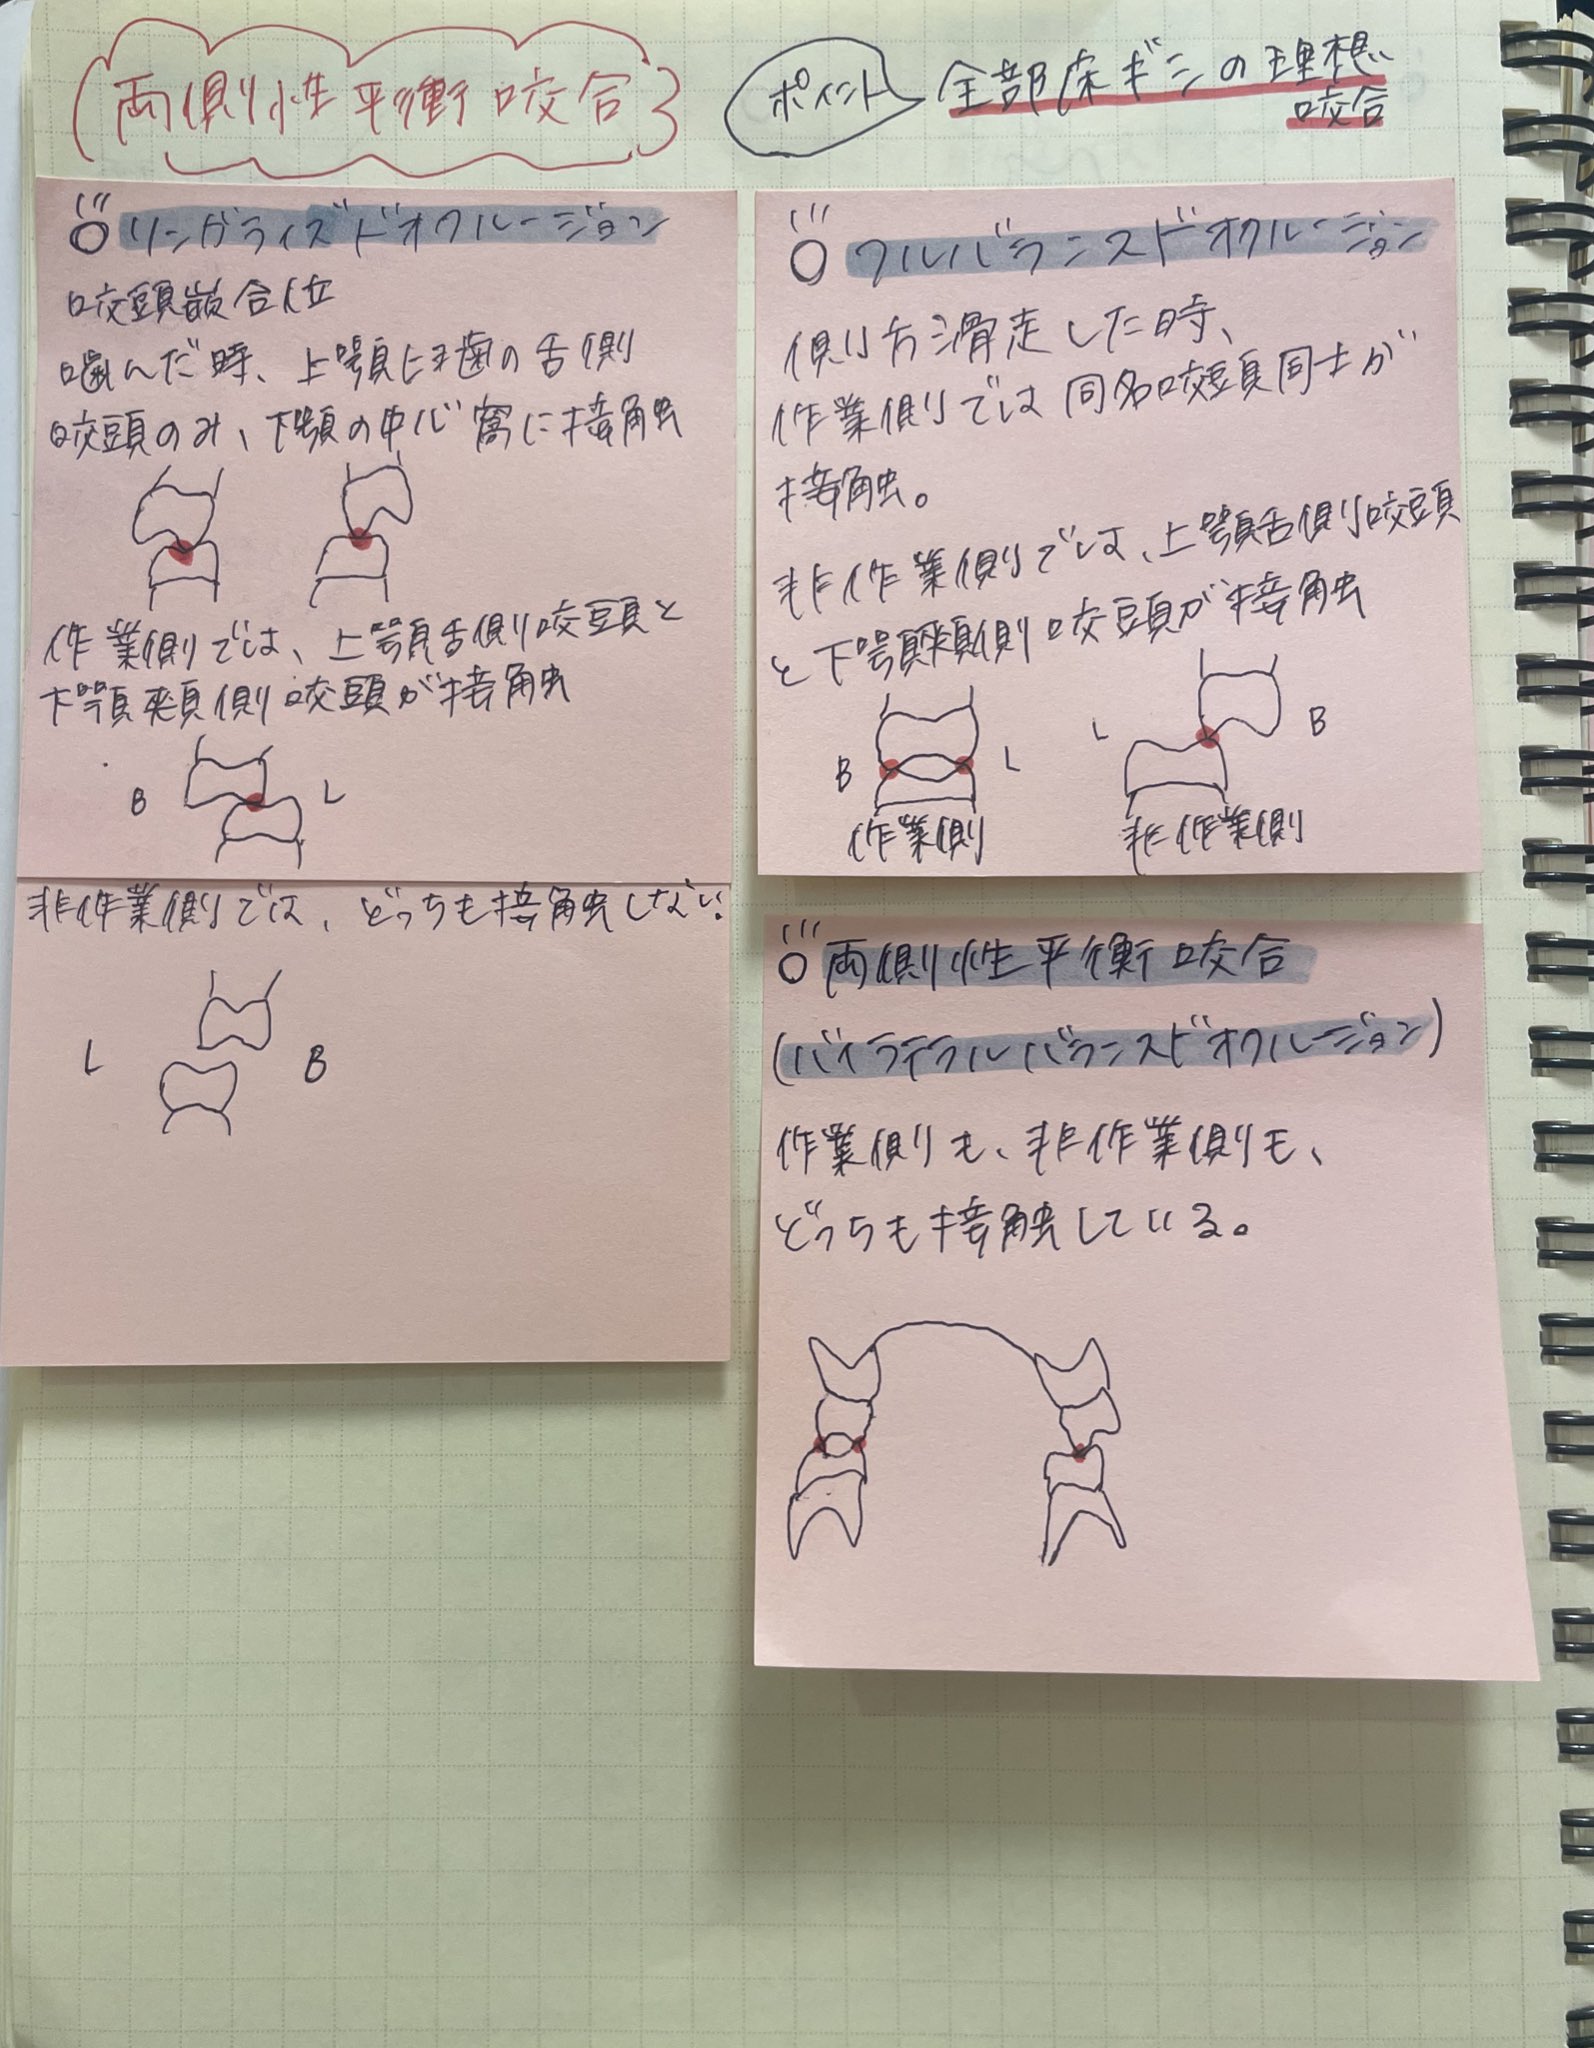 両側性平衡咬合
ポイント
全部床ギシの理想
咬合
リンガライズドオクルージョン
咬頭嵌合位
噛んだ時、上顎臼歯の舌側
咬頭のみ、下顎の中心窩に接触
作業側では、上顎舌側咬頭と
下顎頬側咬頭が接触
B
L
非作業側では、どっちも接触しない。
L
B
フルバランスドオクルージョン
側方滑走した時、
作業側では同名咬頭同士が
接触。
非作業側では、上顎舌側咬頭
と下顎頬側咬頭が接触
B
L
L
B
作業側
非作業側
両側性平衡咬合
(バイラテラルバランスドオクルージョン)
作業側も、非作業側も、
どっちも接触している。